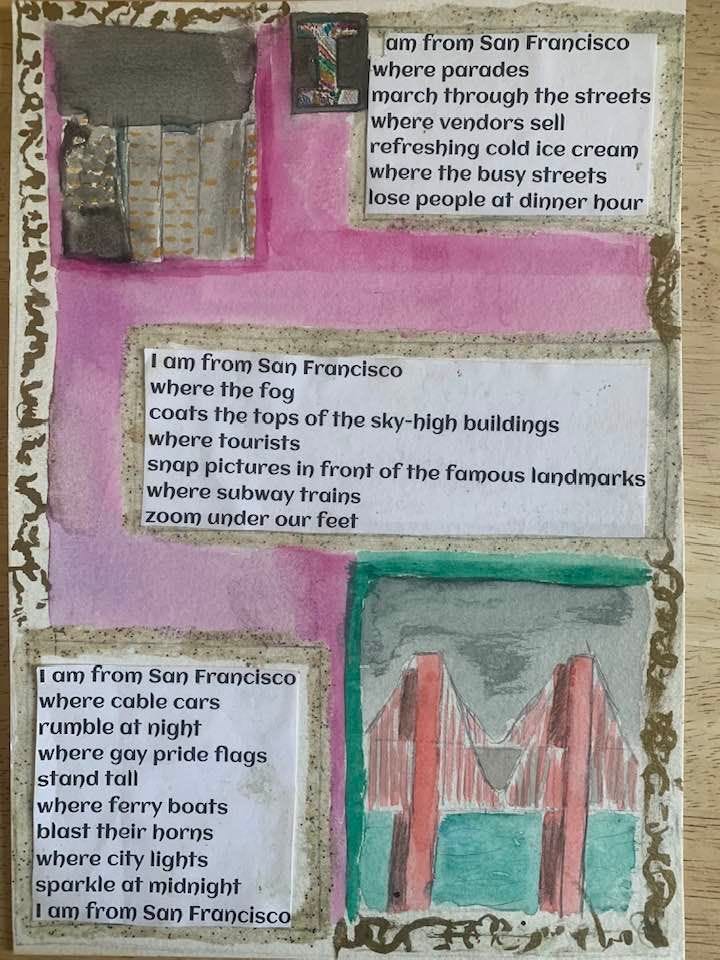 I am from San Francisco
where parades
march through the streets
where vendors sell
refreshing cold ice cream
where the busy streets
lose people at dinner hour
I am from San Francisco
where the fog
coats the tops of the sky-high buildings
where tourists
snap pictures in front of the famous landmarks
where subway trains
zoom under our feet
I am from San Francisco
where cable cars
rumble at night
where gay pride flags
stand tall
where ferry boats
blast their horns
where city lights
sparkle at midnight
I am from San Francisco